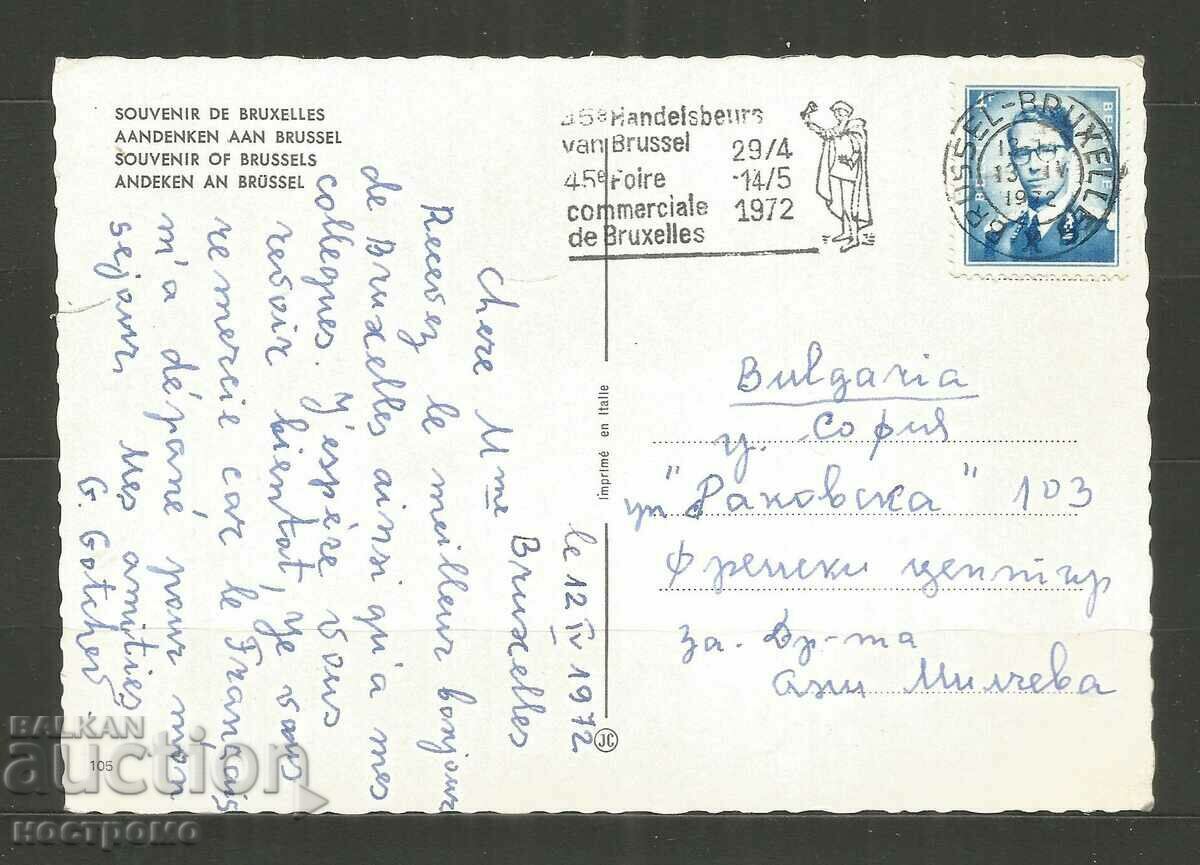 SOUVENIR DE BRUXELLES
AANDENKEN AAN BRUSSEL
SOUVENIR OF BRUSSELS
ANDEKEN AN BRÜSSEL
45e Handelsbeurs
van Brussel
45e Foire
commerciale
de Bruxelles
29/4
-14/5
1972
BRUSSEL-BRUXELLES
13-IV
1972
Bruxelles
le 12 IV 1972
Chere Mme
Recevez le meilleur bonjour
de Bruxelles ainsi qu'a mes
collegues. J'espère vous
revoir bientot, Je vous
remercie car le Français
m'a dépané pour mon
sejour, Mes amities
G. Gotchev
Bulgaria
г. София
ул "Раковска" 103
Френски център
за Др-та
Ани Милчева
Imprimé en Italie
JC
105
BALKAN
auction
костромо